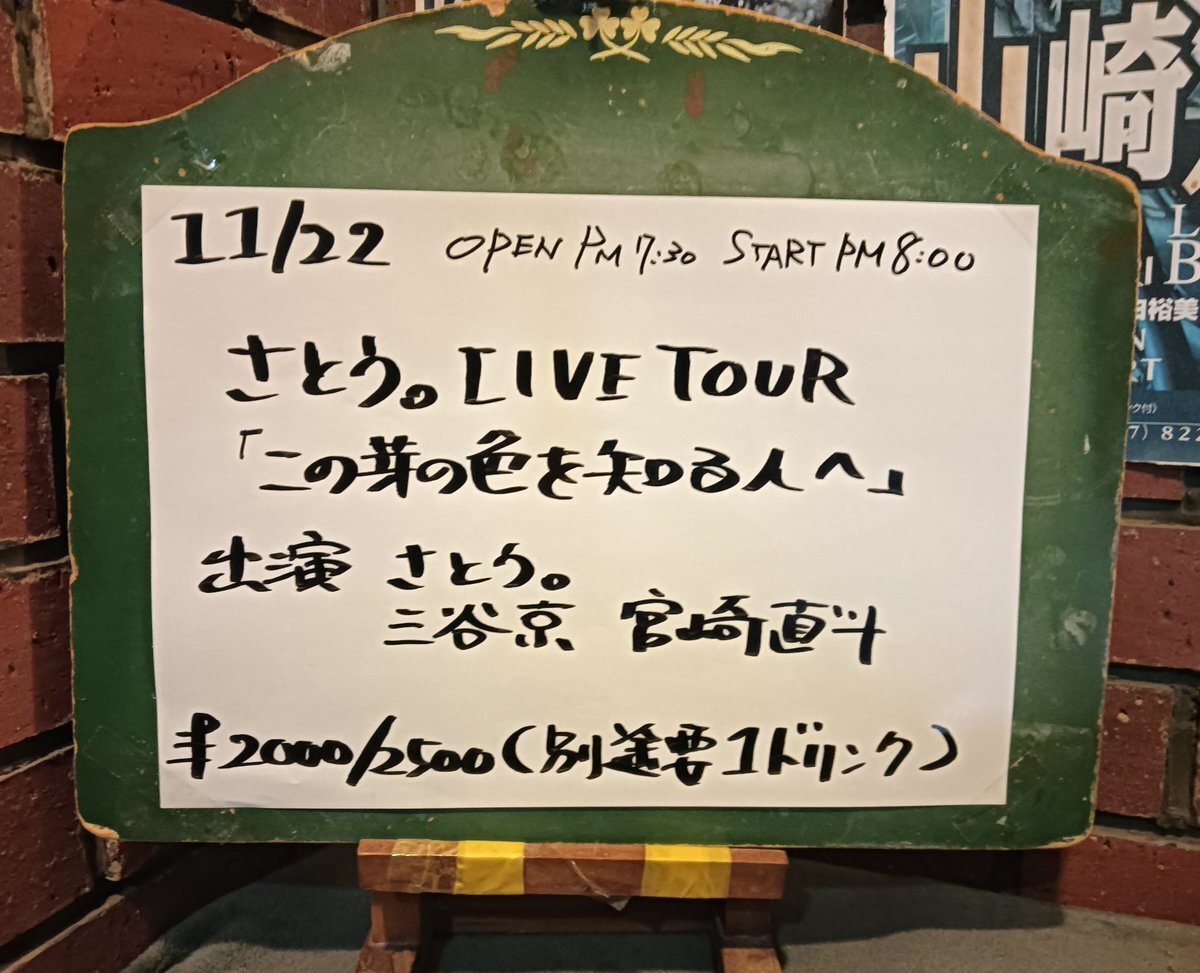 11/22 OPEN PM 7:30 START PM 8:00
さとう。LIVE TOUR
「この芽の色を知る人へ」
出演 さとう。
三谷京 宮崎直斗
¥2000/2500(別途要1ドリンク)
山崎
L
B
田裕美
N
RT
ク付)
7) 82